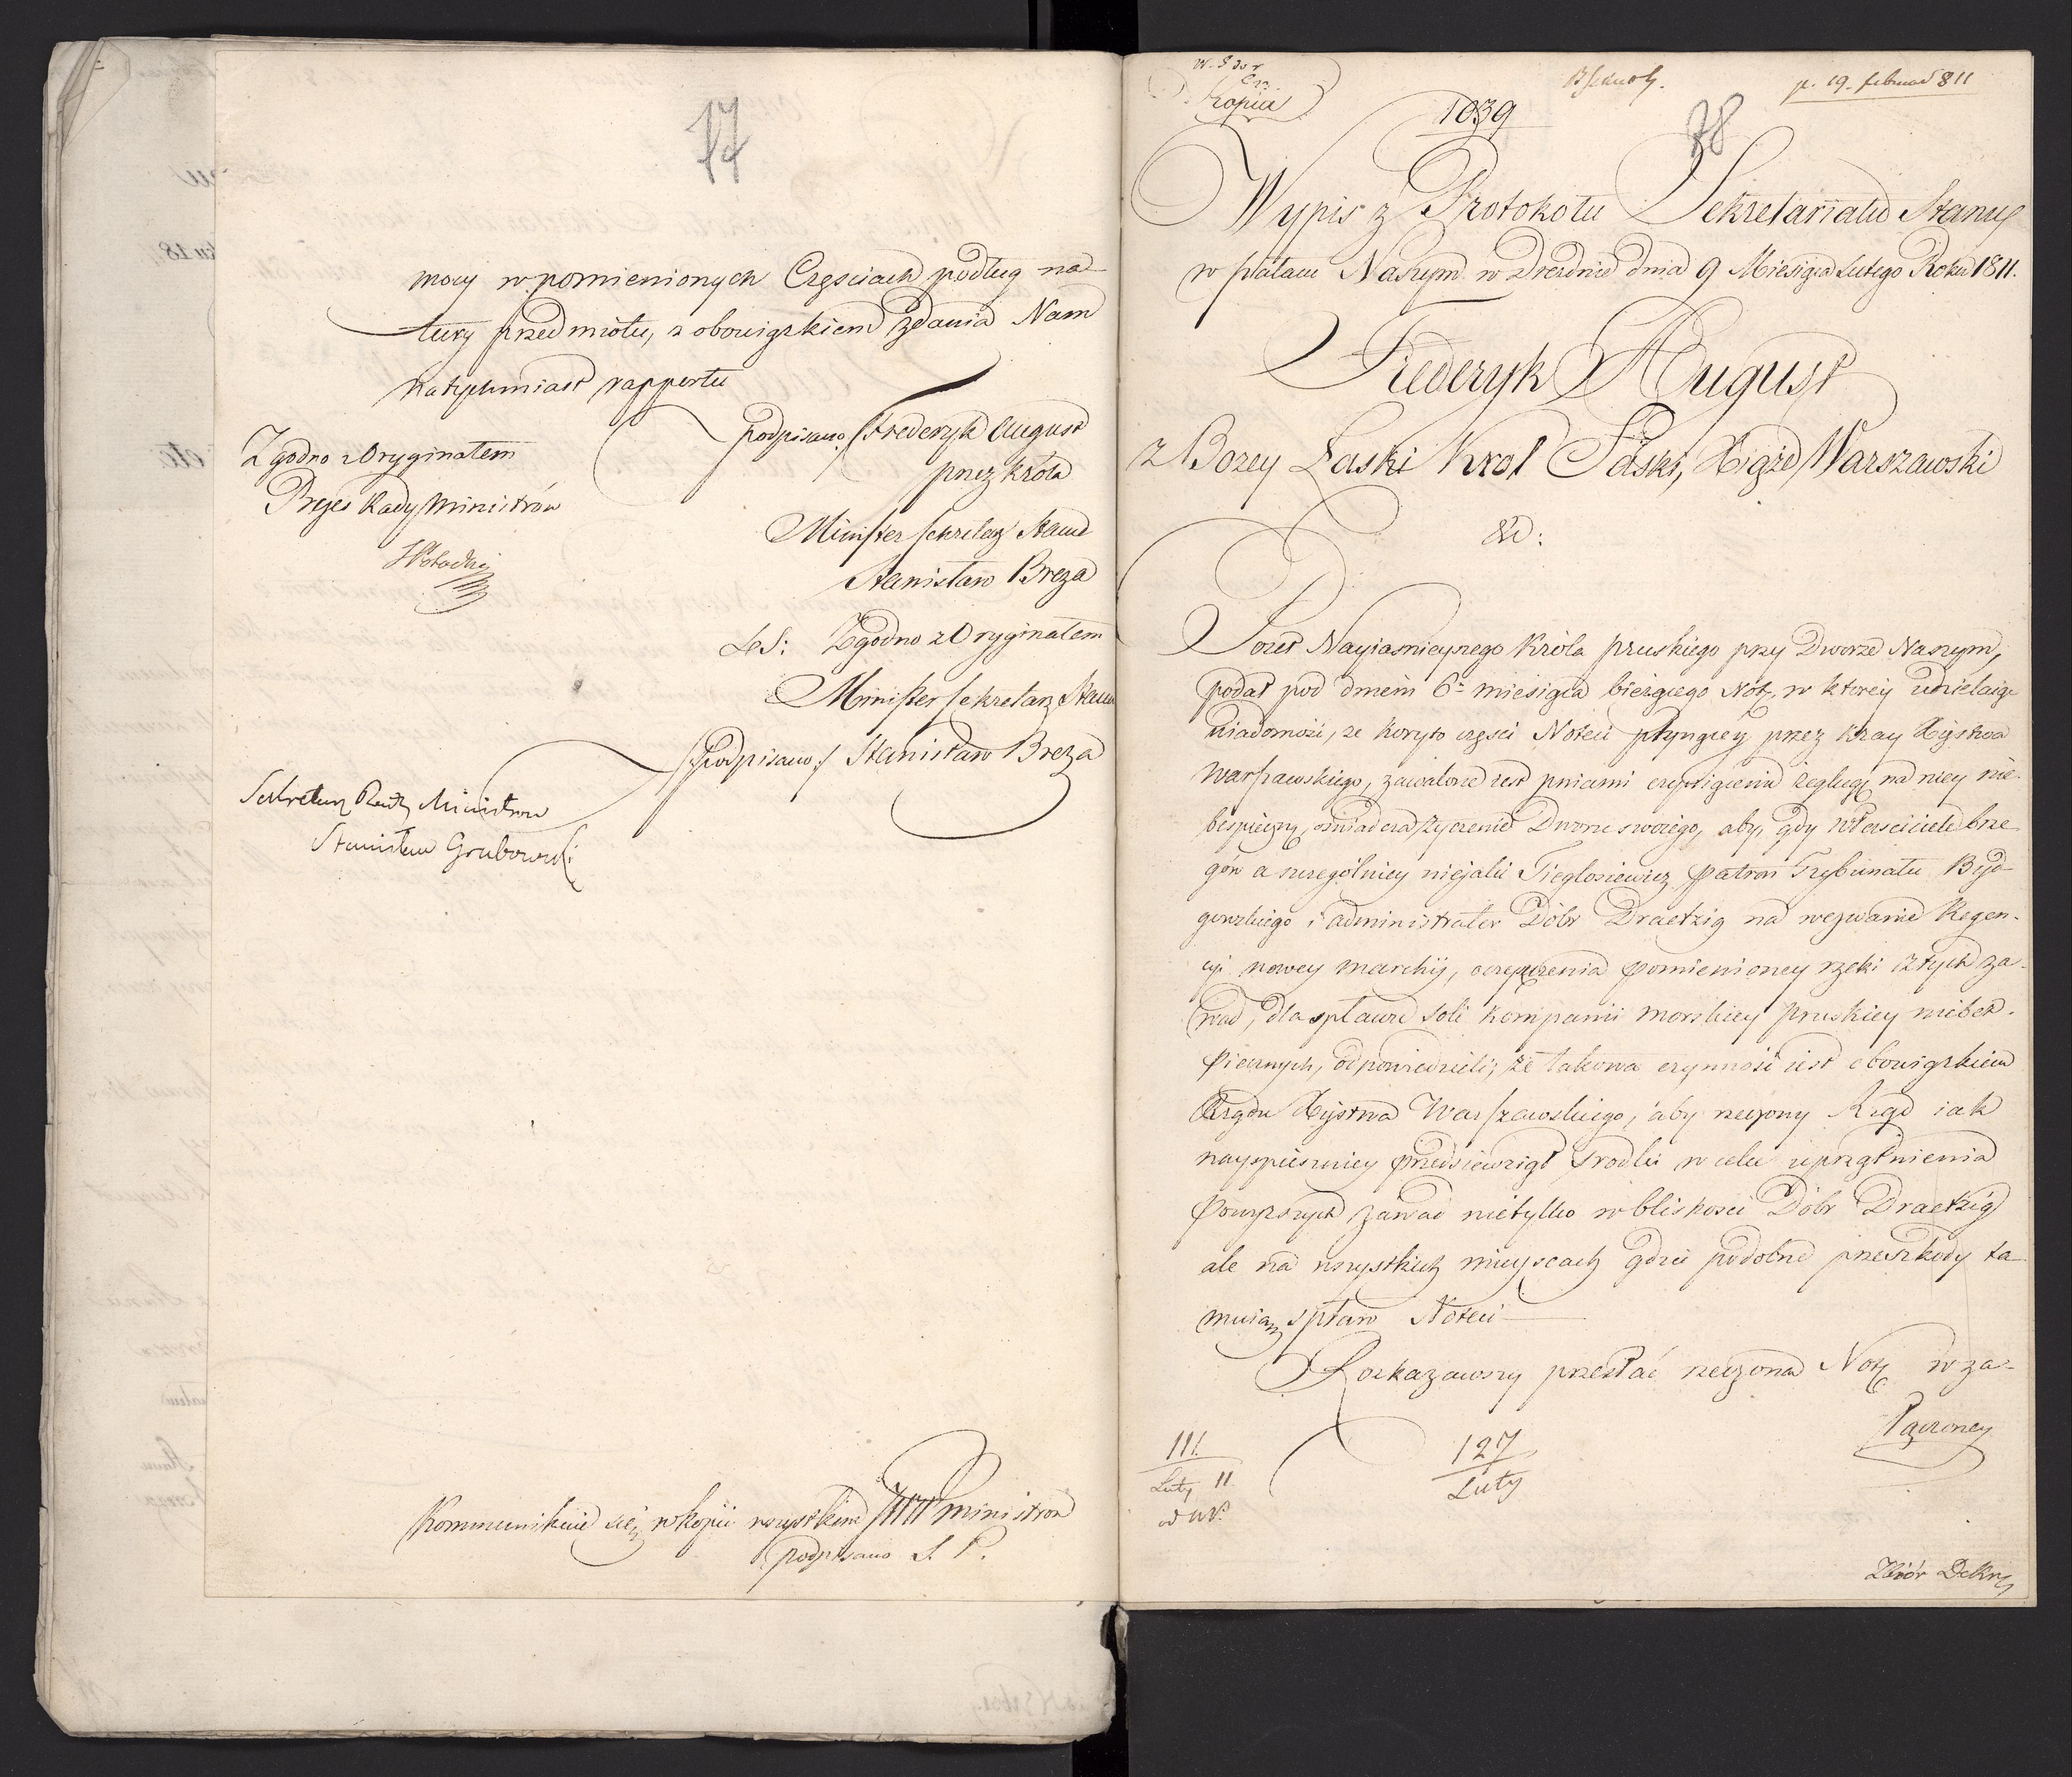 77
mocy w pomienionych Częsciach podług na-
tury przedmiotu, z obowiązkiem zdania Nam
natychmiast rapportu
podpisano/ Frederyk August
przez króla
Minister Sekretarz Stanu
Stanisław Breza
Zgodno z Oryginałem
Prezes Rady Ministrów
LS: Zgodno z Oryginałem
Minister Sekretarz Stanu
/:podpisano:/ Stanisław Breza
Sekretarz Rady Ministrow
Stanisław Grabowski
Kommunikuie się w kopii wszystkim JWW ministrom
podpisano S. P.
Kopia
1039
p. 19. februar 811
78
Wypis z Protokołu Sekretariatu Stanu
w pałacu Naszym w Dreznie dnia 9 Miesiąca Lutego Roku 1811.
Frederyk August
z Bozey Łaski Krol Saski, Xiąże Warszawski
&c:
Poseł Nayiasnieyszego Króla pruskiego przy Dworze Naszym,
podał pod dniem 6. miesiąca bieżącego Notę, w ktorey udzielaiąc
wiadomość, ze koryto częsci Noteci płynącey przez kray Xięstwa
Warszawskiego, zawalone iest pniami czyniącemi żeglugę na niey nie-
bespieczną, oswiadcza życzenie Dworu swoiego, aby, gdy właściciele brze-
gów a szczególniey niejaki Tieglosiewicz patron Trybunału Byd-
goszkiego i administrator Dóbr Draetzig na wezwanie Regen-
cyi nowey marchii, oczyszczenia pomienioney rzeki z tych za-
wad, dla spławu soli kompanii morskiey pruskiey niebez-
piecznych, odpowiedzieli, że takowa czynność iest obowiązkiem
Rządu Xięstwa Warszawskiego, aby rzeczony Rząd iak
nayspieszniey przedsiewziął srodki w celu uprzątnienia
powyzszych zawad nietylko w bliskosci Dóbr Draetzig
ale na wszystkich mieyscach gdzie podobne przeszkody ta-
muią spław Noteci
Rozkazawszy przesłać rzeczoną Notę w za-
łączoney
111.
Luty 11
127
Luty
Zbiór Dekr